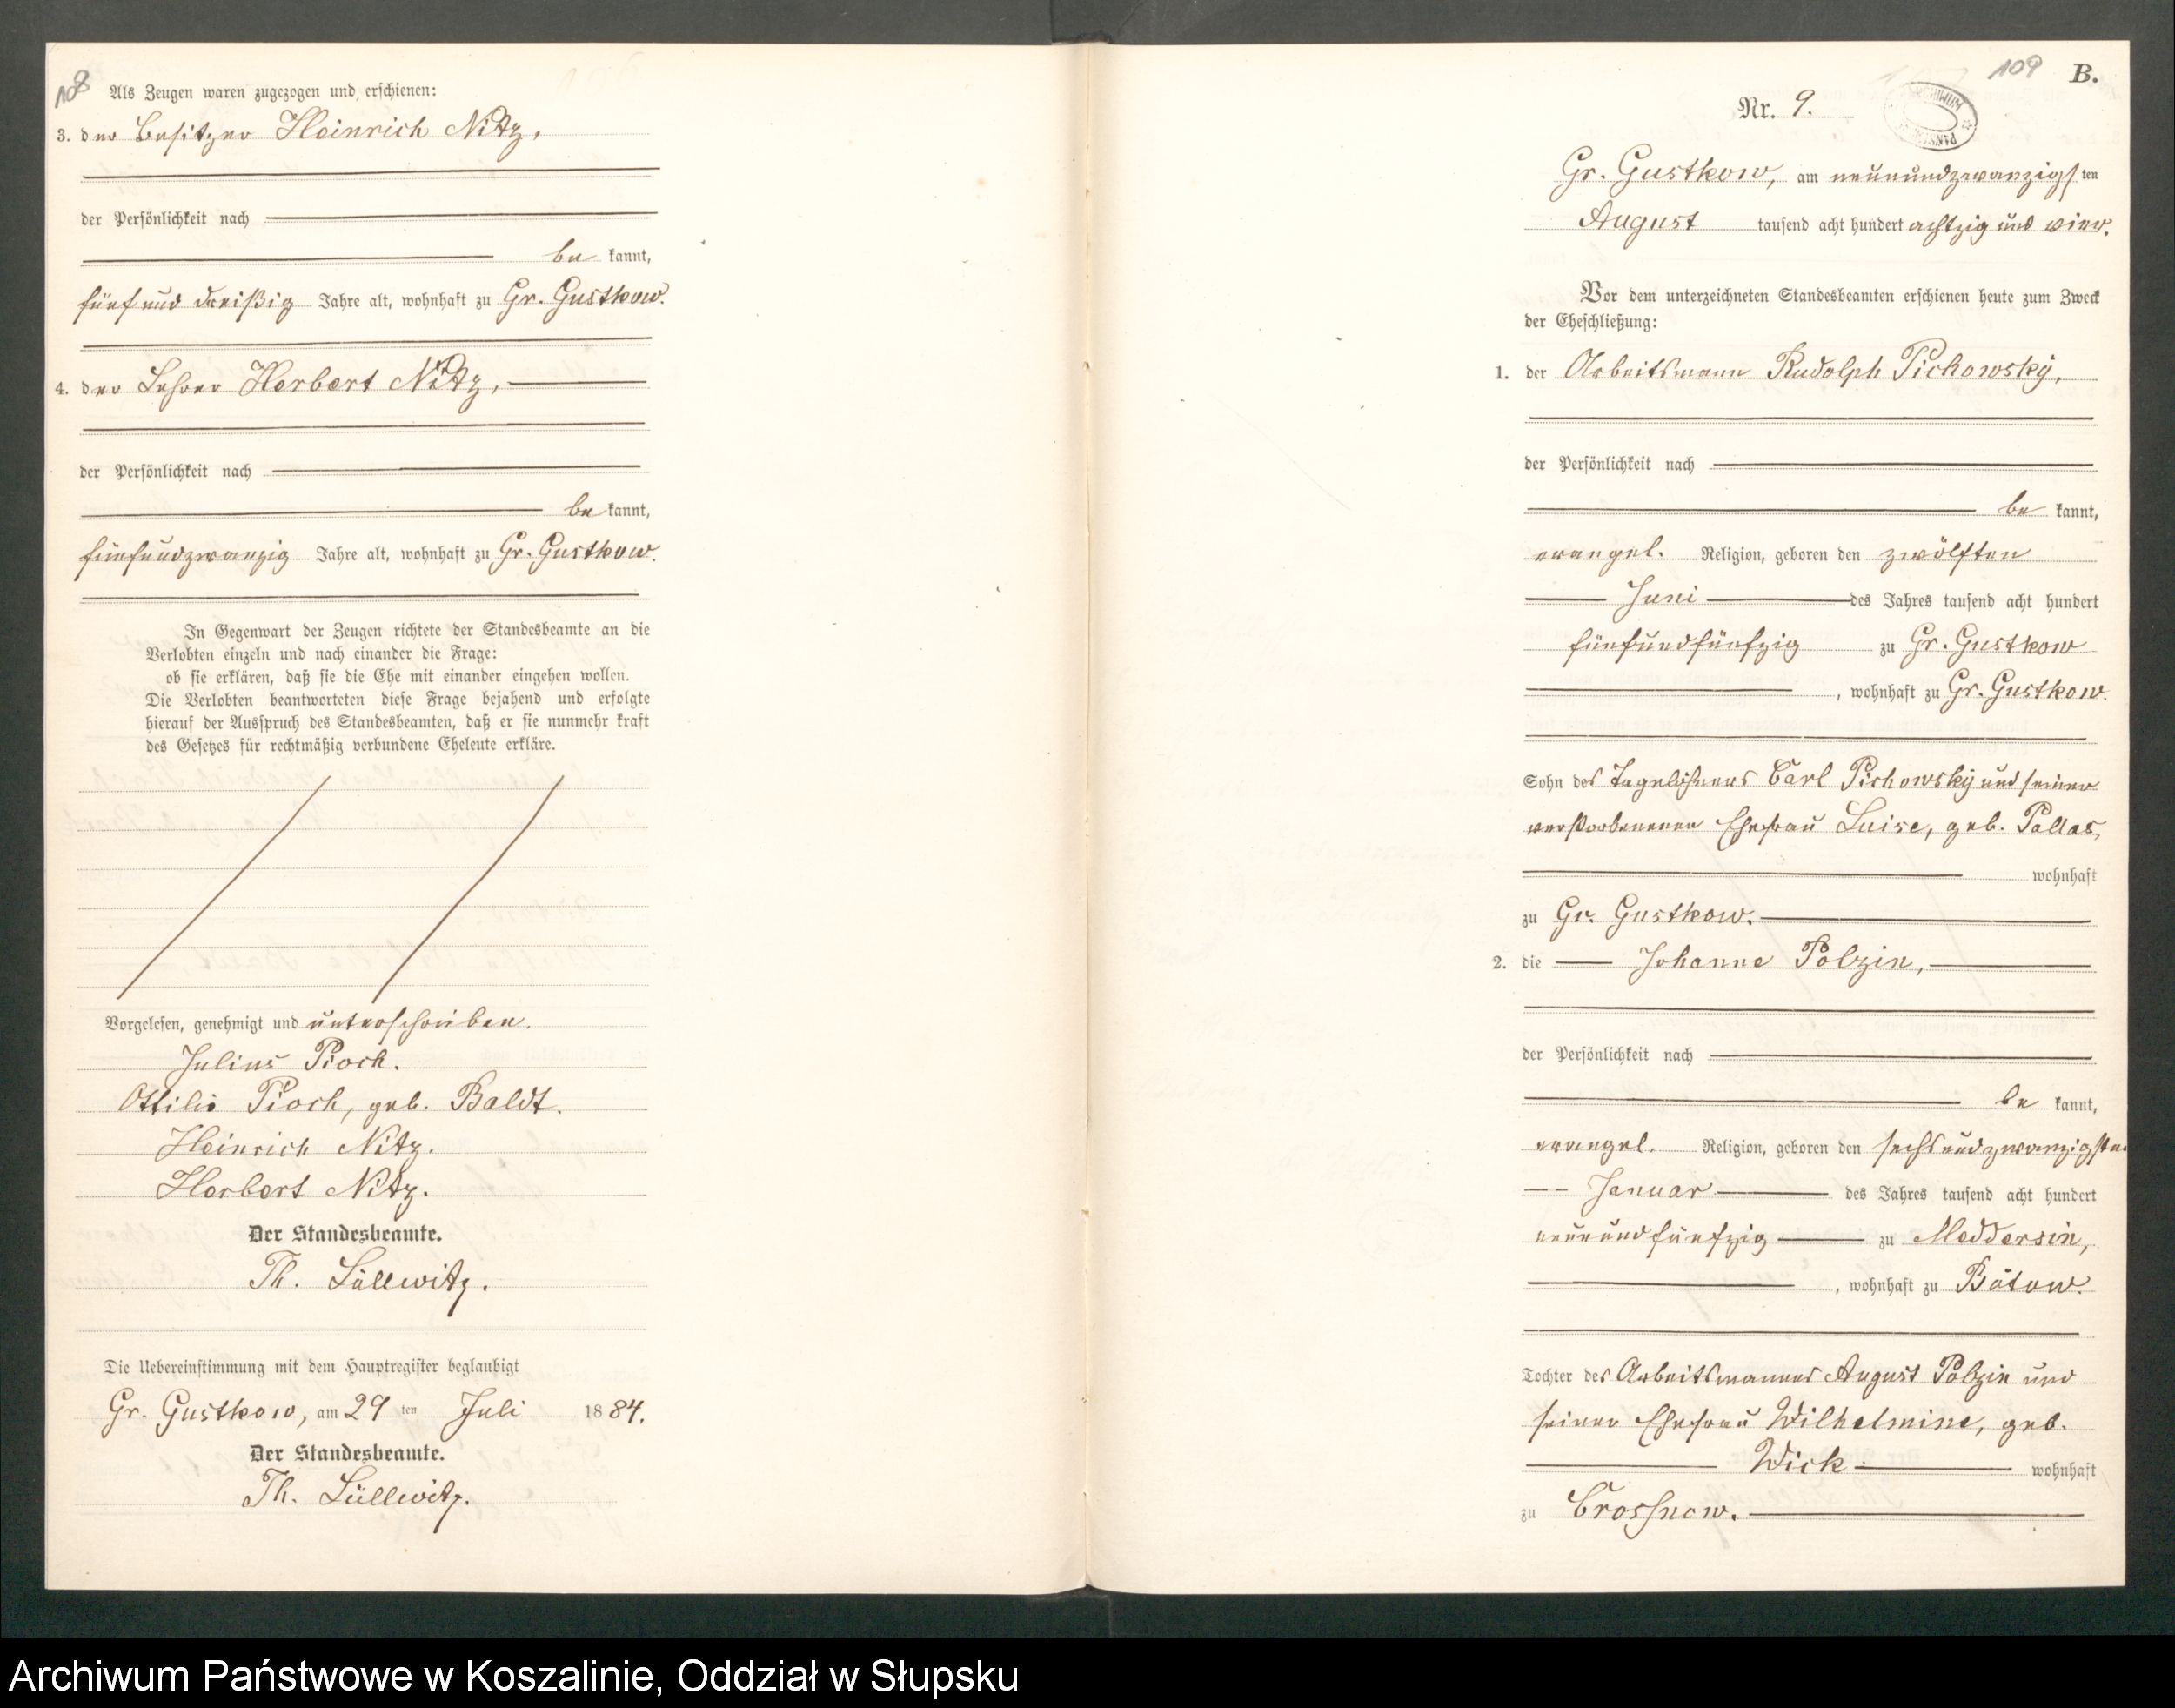 108
Als Zeugen waren zugezogen und erschienen:
3. der Besitzer Heinrich Nitz,
der Persönlichkeit nach
be kannt,
fünf und dreißig Jahre alt, wohnhaft zu Gr. Gustkow.
4. der Lehrer Herbert Nitz,
der Persönlichkeit nach
be kannt,
fünfundzwanzig Jahre alt, wohnhaft zu Gr. Gustkow.
In Gegenwart der Zeugen richtete der Standesbeamte an die
Verlobten einzeln und nach einander die Frage:
ob sie erklären, daß sie die Ehe mit einander eingehen wollen.
Die Verlobten beantworteten diese Frage bejahend und erfolgte
hierauf der Ausspruch des Standesbeamten, daß er sie nunmehr kraft
des Gesetzes für rechtmäßig verbundene Eheleute erkläre.
Vorgelesen, genehmigt und unterschrieben.
Julius Pioch.
Ottilie Pioch, geb. Baldt.
Heinrich Nitz.
Herbert Nitz.
Der Standesbeamte.
Th. Lüllwitz.
Die Uebereinstimmung mit dem Hauptregister beglaubigt
Gr. Gustkow, am 29 ten Juli 1884.
Der Standesbeamte.
Th. Lüllwitz.
109 B.
Nr. 9.
Gr. Gustkow, am neunundzwanzigsten
August tausend acht hundert achtzig und vier.
Vor dem unterzeichneten Standesbeamten erschienen heute zum Zweck
der Eheschließung:
1. der Arbeitsmann Rudolph Pichowsky,
der Persönlichkeit nach
be kannt,
evangel. Religion, geboren den zwölften
Juni des Jahres tausend acht hundert
fünfundfünfzig zu Gr. Gustkow
, wohnhaft zu Gr. Gustkow.
Sohn des Tagelöhners Carl Pichowsky und seiner
verstorbenenen Ehefrau Luise, geb. Pallas,
wohnhaft
zu Gr. Gustkow.
2. die Johanne Polzin,
der Persönlichkeit nach
be kannt,
evangel. Religion, geboren den sechsundzwanzigsten
Januar des Jahres tausend acht hundert
neunundfünfzig zu Meddersin,
, wohnhaft zu Bütow.
Tochter des Arbeitsmannes August Polzin und
seiner Ehefrau Wilhelmine, geb.
Wick wohnhaft
zu Crossnow.
Archiwum Państwowe w Koszalinie, Oddział w Słupsku